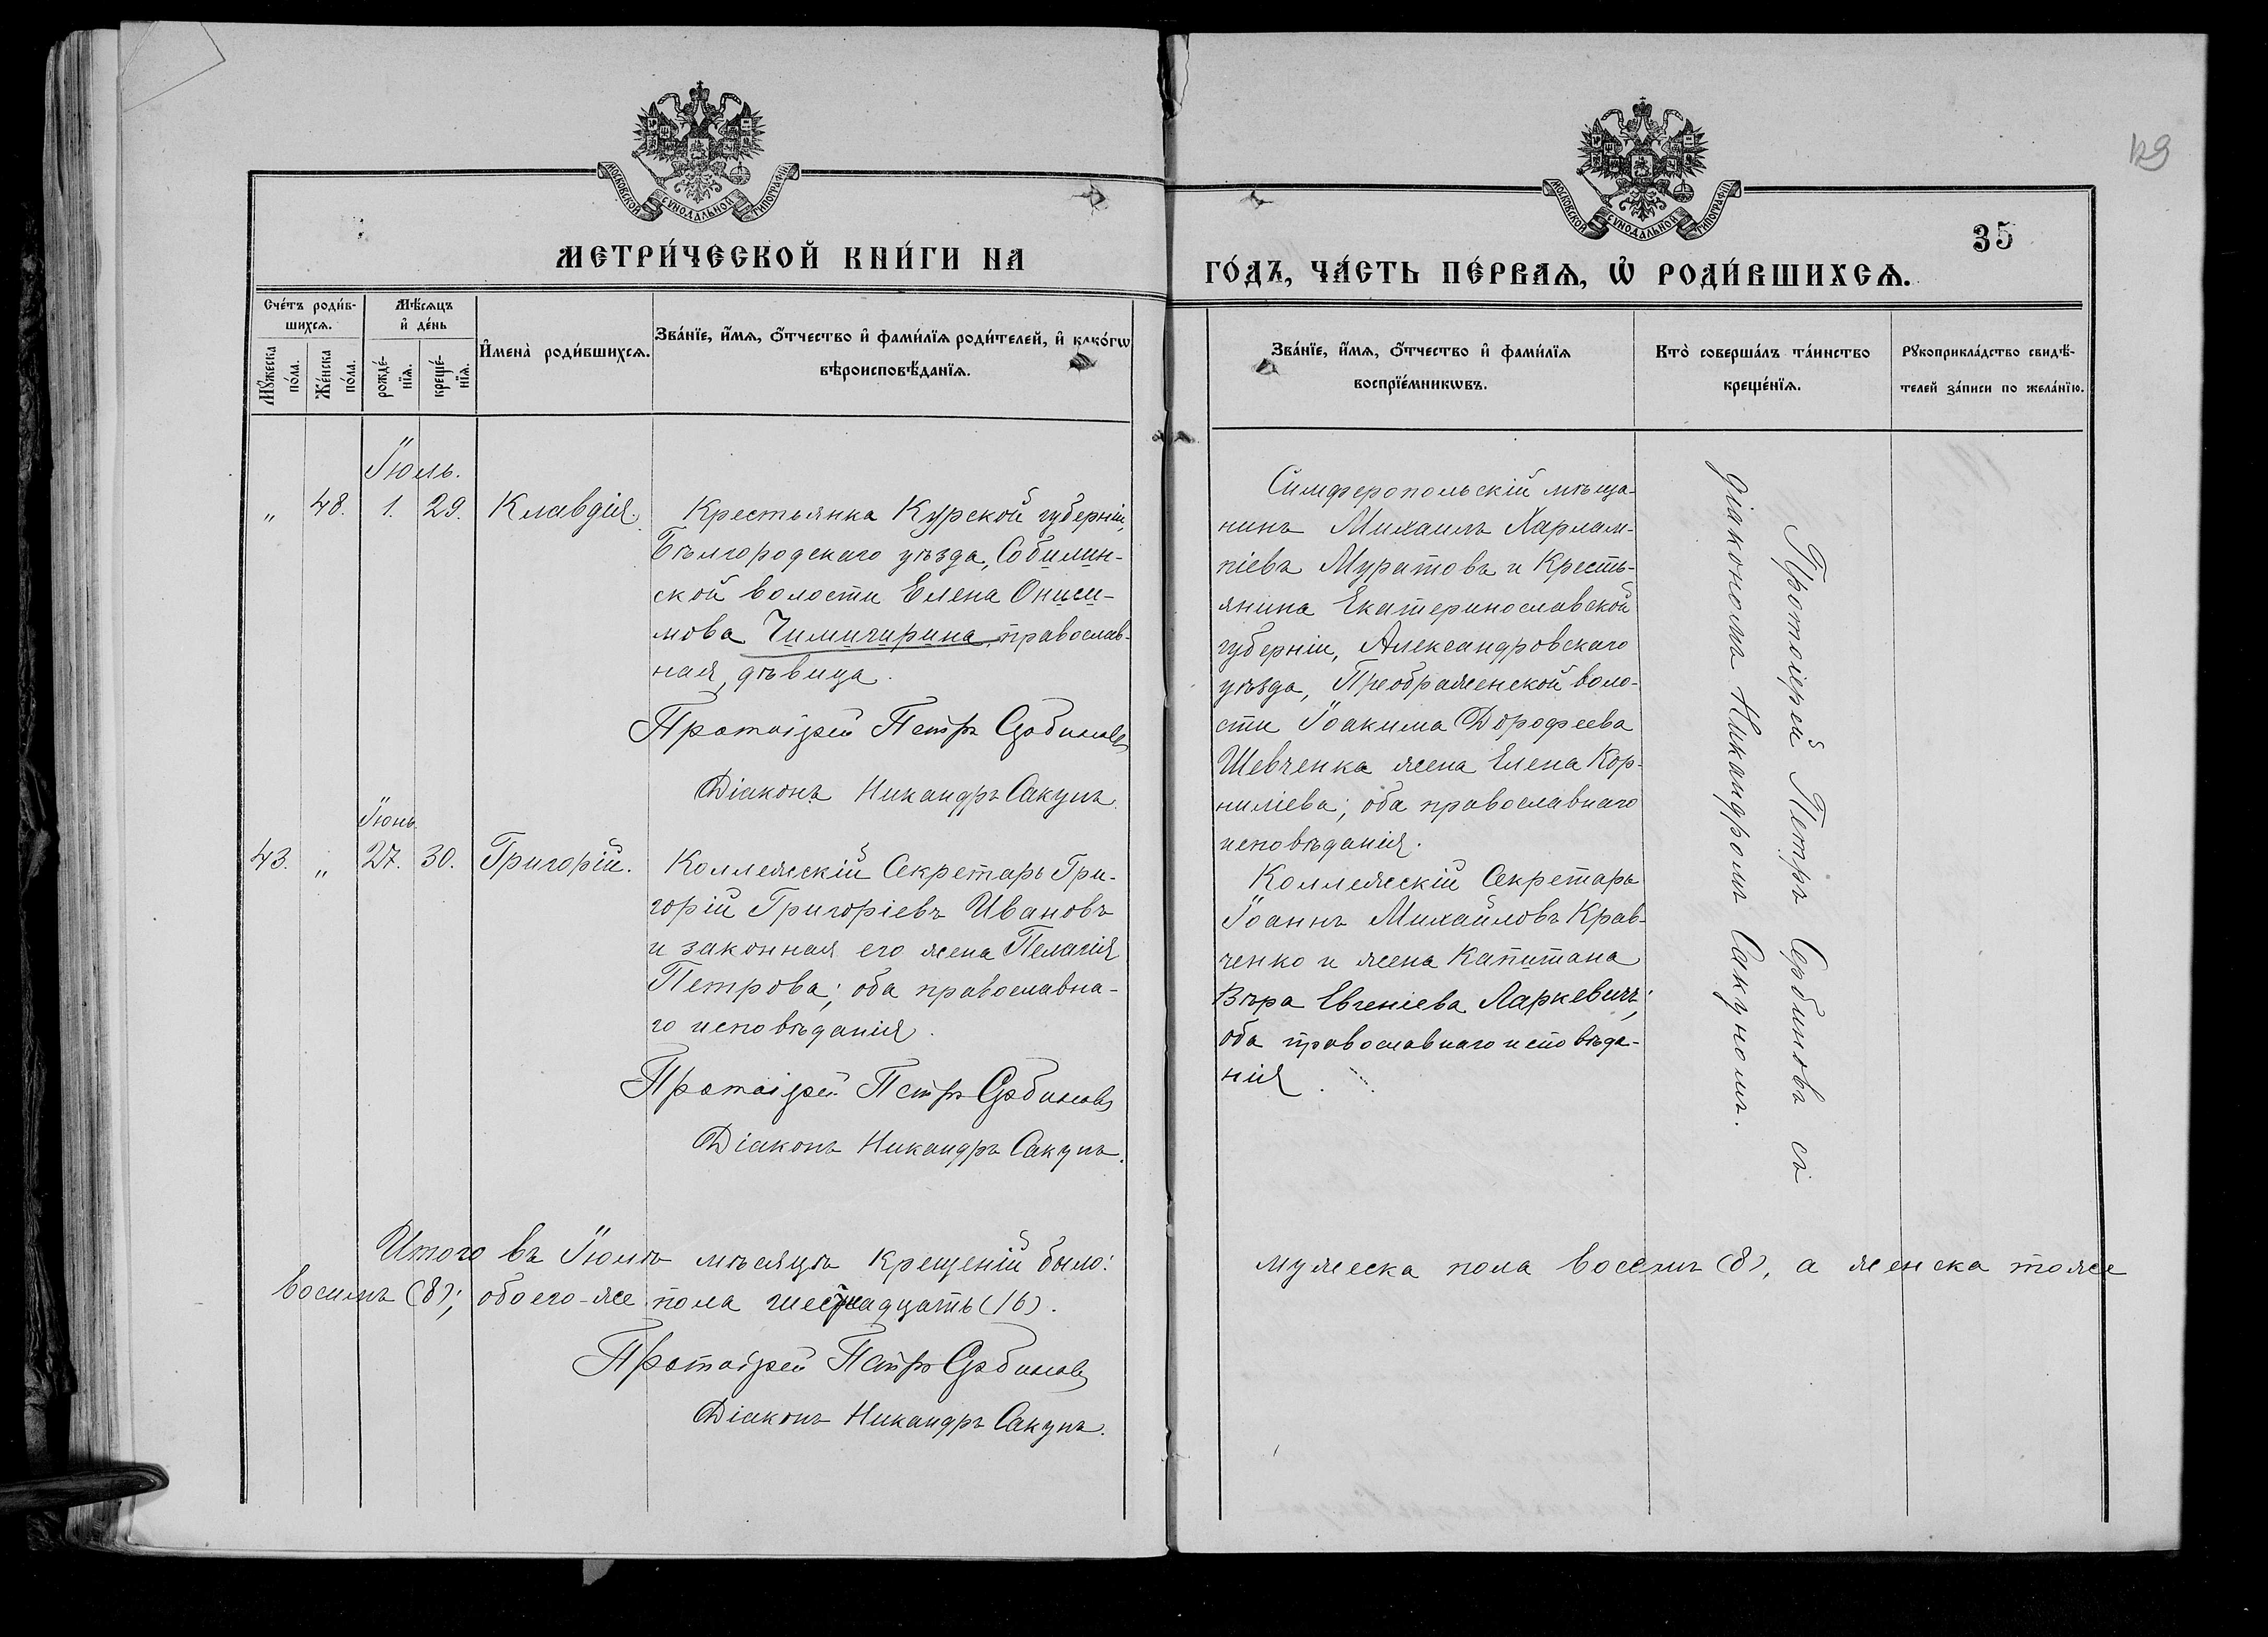 129
35
МОСКОВСКОЙ СѴНОДАЛЬНОЙ ТИПОГРАФІИ
МОСКОВСКОЙ СѴНОДАЛЬНОЙ ТИПОГРАФІИ
МЕТРИ́ЧЕСКОЙ КНИ́ГИ НА
ГО́ДЪ, ЧА́СТЬ ПЕ́РВАѦ, Ѡ҆ РОДИ́ВШИХСѦ.
Сче́тъ роди́в-
шихсѧ.
Мѣ́сѧцъ
и҆ де́нь
Мꙋ́жеска по́ла.
Же́нска по́ла.
рожде́-
нїѧ.
креще́-
нїѧ.
И҆мена̀ роди́вшихсѧ.
Зва́нїе, и҆́мѧ, ѻ҆́тчество и҆ фами́лїѧ роди́телей, и҆ како́гѡ
вѣроисповѣ́данїѧ.
Зва́нїе, и҆́мѧ, ѻ҆́тчество и҆ фами́лїѧ
воспрїе́мникѡвъ.
Кто̀ соверша́лъ та́инство
креще́нїѧ.
Рꙋкоприкла́дство свидѣ́-
телей за́писи по жела́нїю.
Іюль.
„ 48. 1. 29. Клавдія.
Крестьянка Курской губерніи,
Бѣлгородскаго уѣзда, Собилин-
ской волости Елена Ониси-
мова Чимичирина, православ-
ная, дѣвица.
Протоіерей Петръ Сербиновъ
Діаконъ Никандръ Сакунъ.
Симферопольскій мѣща-
нинъ Михаилъ Харлам-
піевъ Муратовъ и Кресть-
янина Екатеринославской
губерніи, Александровскаго
уѣзда, Преображенской воло-
сти Іоакима Дорофеева
Шевченка жена Елена Кор-
ниліева; оба православнаго
исповѣданія.
Протоіерей Петръ Сербиновъ съ
діакономъ Никандромъ Сакуномъ.
Іюнь
43. „ 27. 30. Григорій.
Коллежскій Секретарь Гри-
горій Григоріевъ Ивановъ
и законная его жена Пелагія
Петрова; оба православна-
го исповѣданія.
Протоіерей Петръ Сербиновъ
Діаконъ Никандръ Сакунъ.
Коллежскій Секретарь
Іоаннъ Михайловъ Крав-
ченко и жена Капитана
Вѣра Евгеніева Ларкевичъ;
оба православнаго исповѣда-
нія.
Итого въ Іюлѣ мѣсяцѣ крещеній было: мужеска пола восемь (8), а женска тоже
восемь (8); обоего-же пола шестнадцать (16).
Протоіерей Петръ Сербиновъ
Діаконъ Никандръ Сакунъ.